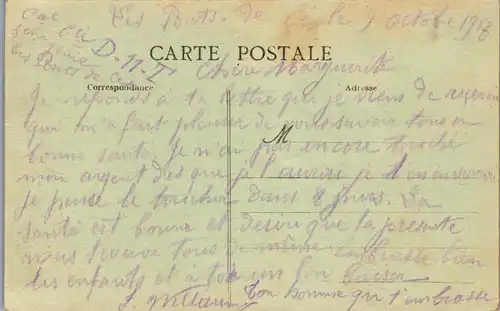 Les Ponts de Cé le 7 octobre 1917
CARTE POSTALE
D-11-I
Chère Marguerite
Correspondance Adresse
Je réponds à ta lettre que je viens de recevoir
qui m'a fait plaisir de vous savoir tous en
M
bonne santé je n'ai pas encore touché
mon argent dès que je l'aurai je t'en enverrai
je pense le toucher dans 8 jours. La
santé est bonne et désire que la présente
vous trouve tous de même embrasse bien
les enfants et a toi un bon baiser
Ton homme qui t'embrasse